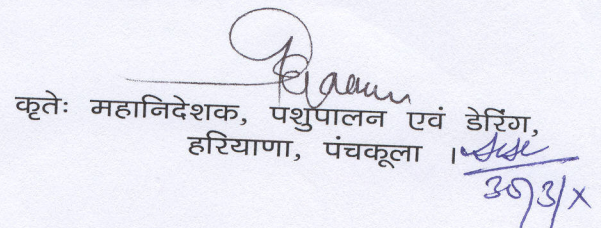 कृतेः महानिदेशक, पशुपालन एवं डेरिंग,
हरियाणा, पंचकूला ।